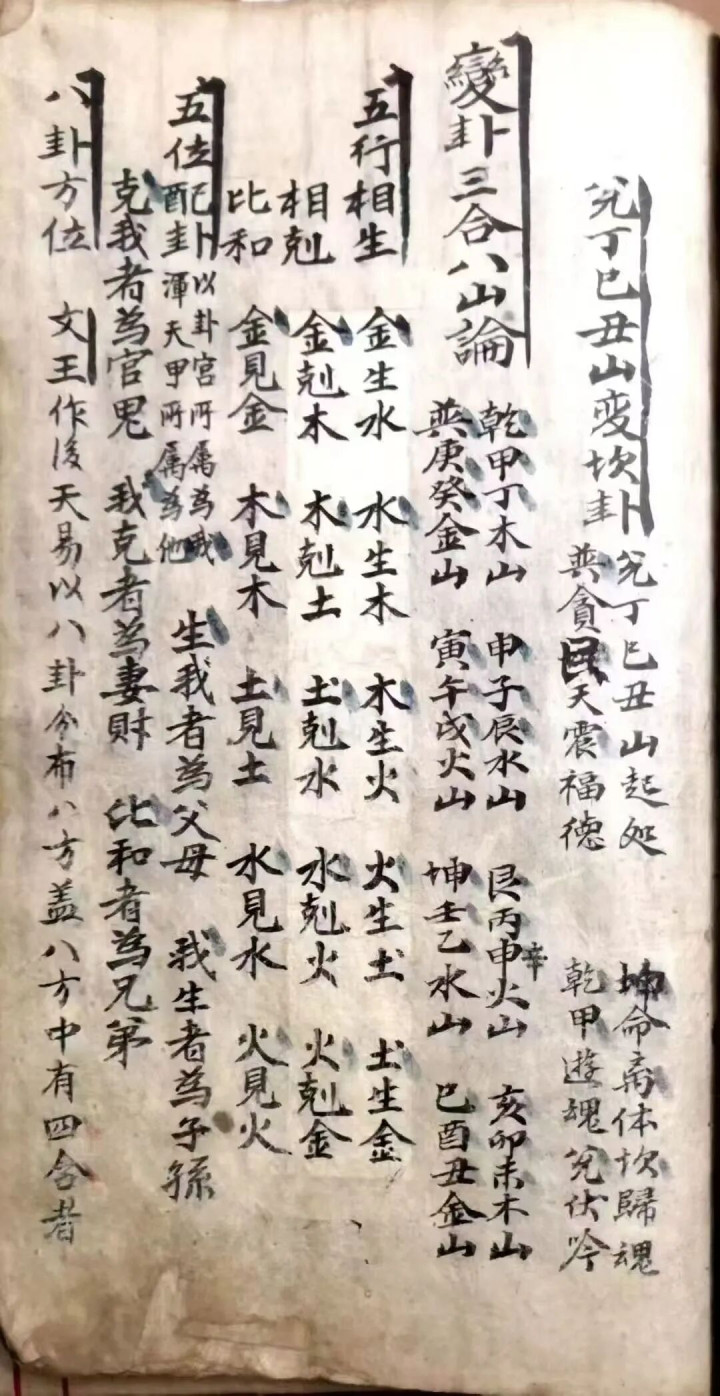 兊丁巳丑山变坎卦
兊丁巳丑山起処
巽貪
天震福德
坤命
体坎歸魂
乾甲遊魂兊伏吟
變卦三合八山論
乾甲丁木山 申子辰水山 艮丙申火山 亥卯未木山
辛
巽庚癸金山 寅午戌火山 坤壬乙水山 巳酉丑金山
五行相生 金生水 水生木 木生火 火生土 土生金
相剋 金剋木 木剋土 土剋水 水剋火 火剋金
比和 金見金 木見木 土見土 水見水 火見火
五位配卦
以卦宫所属為我
渾天甲所属為他
生我者為父母 我生者為子孫
克我者為官鬼 我克者為妻財 比和者為兄弟
八卦方位 文王作後天易以八卦分布八方盖八方中有四含者